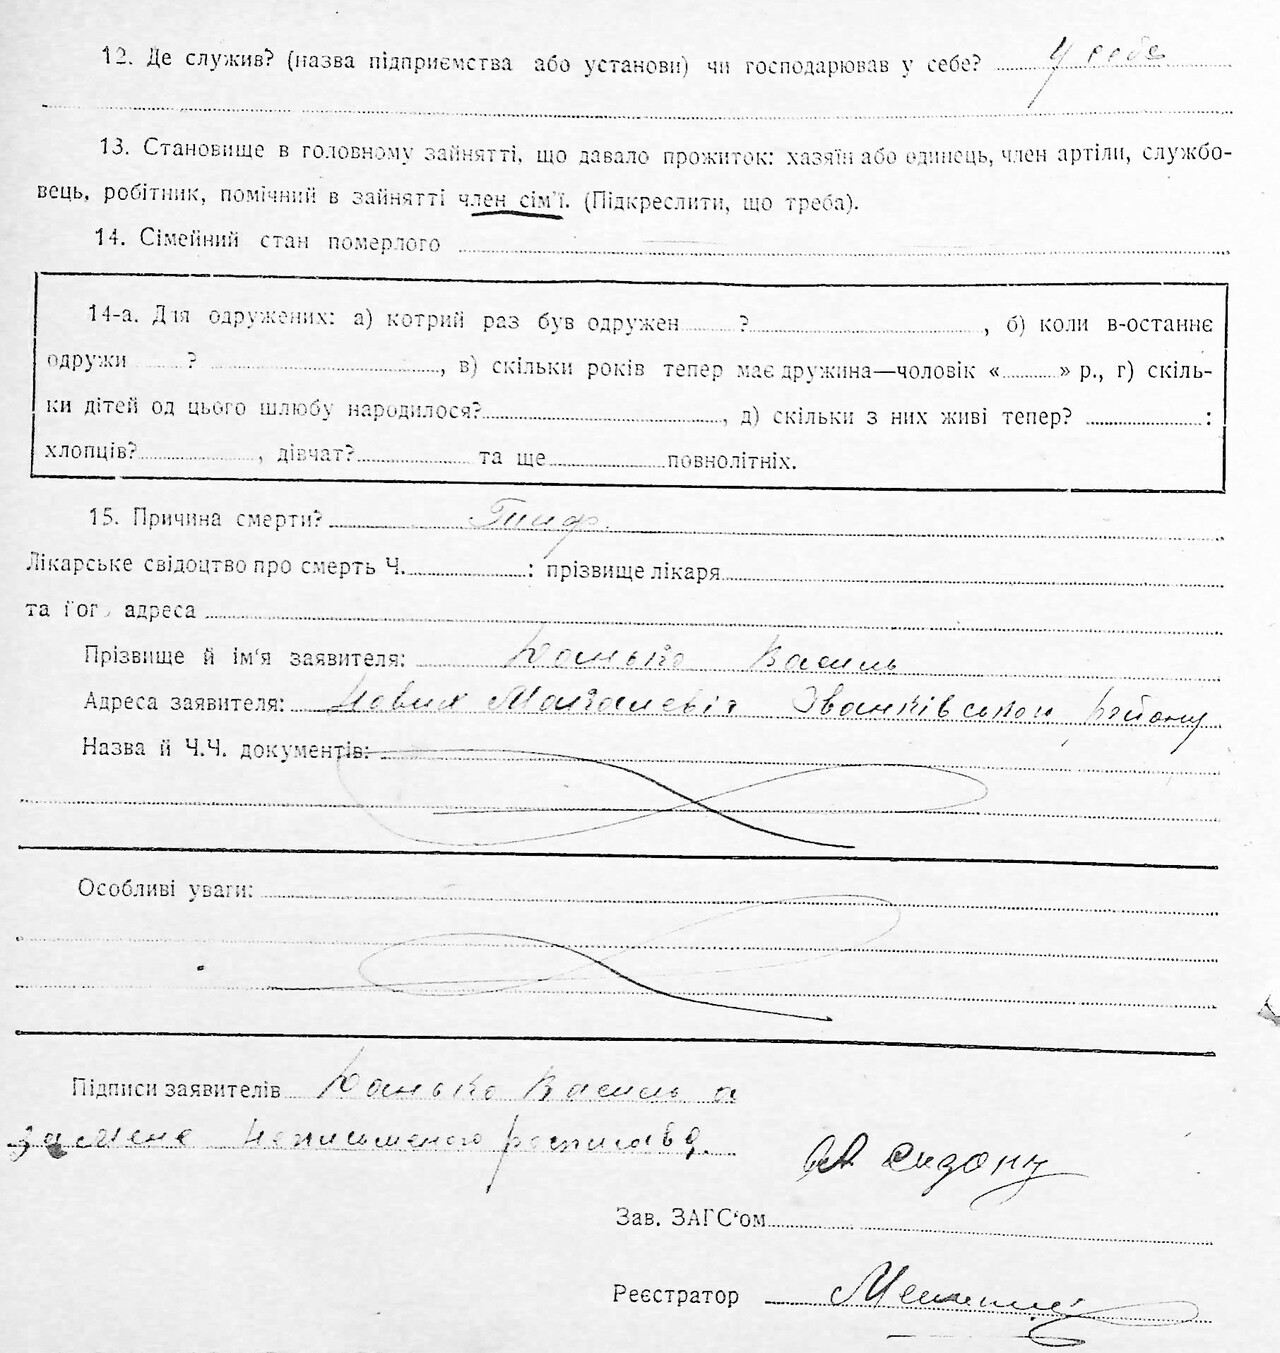 12. Де служив? (назва підприємства або установи) чи господарював у себе? у себе
13. Становище в головному зайнятті, що давало прожиток: хазяїн або одинець, член артіли, службо-
вець, робітник, помічний в зайнятті член сім'ї. (Підкреслити, що треба).
14. Сімейний стан померлого
14-а. Для одружених: а) котрий раз був одружен ? , б) коли в-останнє
одружи ? , в) скільки років тепер має дружина—чоловік « » р., г) скіль-
ки дітей од цього шлюбу народилося? , д) скільки з них живі тепер? :
хлопців? , дівчат? та ще повнолітніх.
15. Причина смерти? Тиф.
Лікарське свідоцтво про смерть Ч. : прізвище лікаря
та його адреса
Прізвище й ім'я заявителя: Василь
Адреса заявителя: Нових Макалевіч Іванківського району
Назва й Ч.Ч. документів:
Особливі уваги:
Підписи заявителів Василь а
за мене неписьменого росписавс.
Зав. ЗАГС'ом
Реєстратор